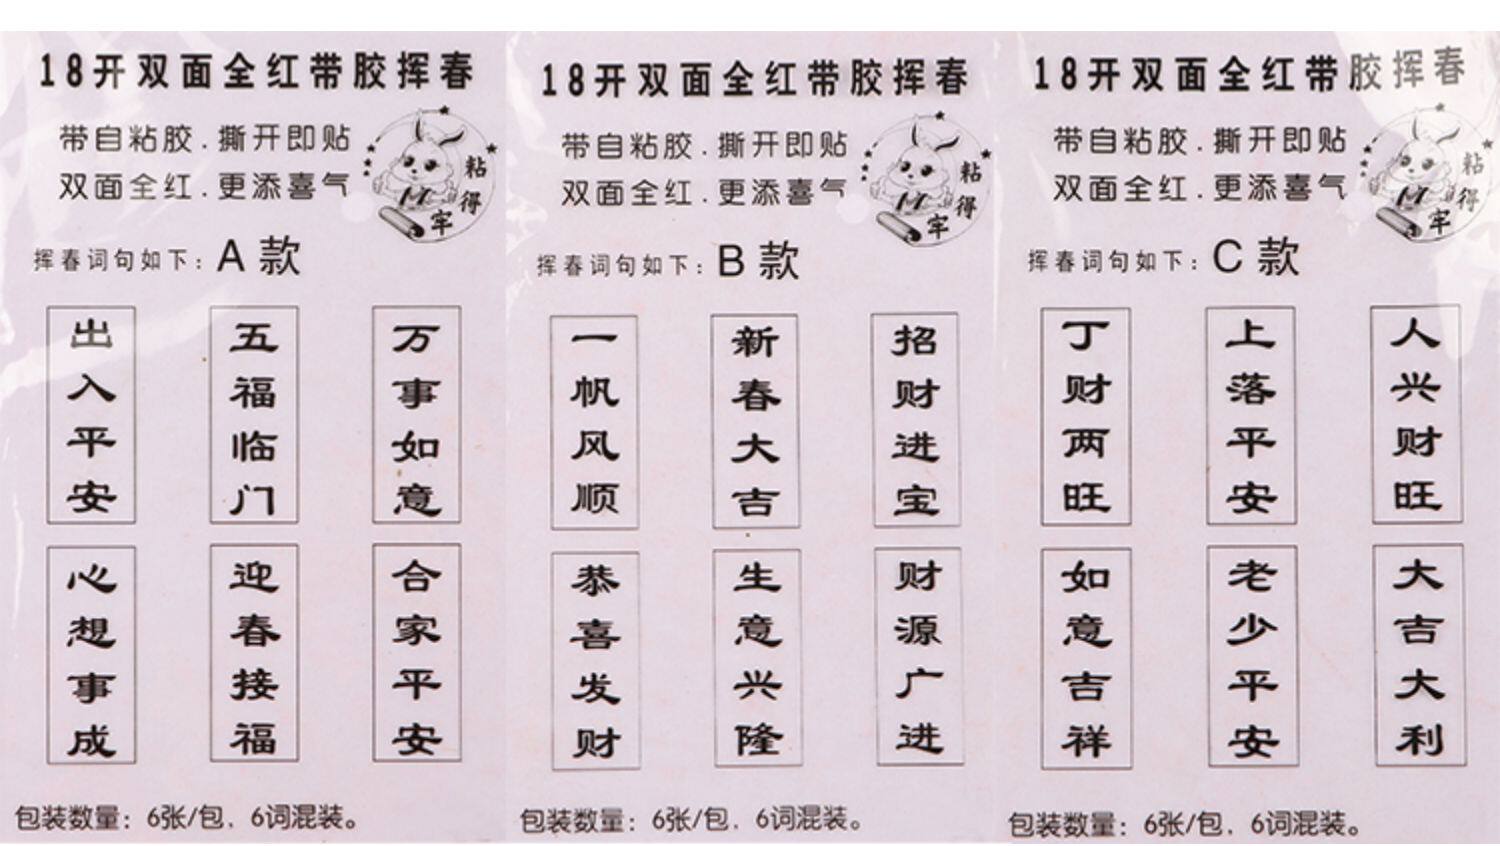 18开双面全红带胶挥春
带自粘胶.撕开即贴
双面全红.更添喜气
粘得牢
挥春词句如下：A 款
出入平安
五福临门
万事如意
心想事成
迎春接福
合家平安
包装数量：6张/包，6词混装。
18开双面全红带胶挥春
带自粘胶.撕开即贴
双面全红.更添喜气
粘得牢
挥春词句如下：B 款
一帆风顺
新春大吉
招财进宝
恭喜发财
生意兴隆
财源广进
包装数量：6张/包，6词混装。
18开双面全红带胶挥春
带自粘胶.撕开即贴
双面全红.更添喜气
粘得牢
挥春词句如下：C 款
丁财两旺
上落平安
人兴财旺
如意吉祥
老少平安
大吉大利
包装数量：6张/包，6词混装。